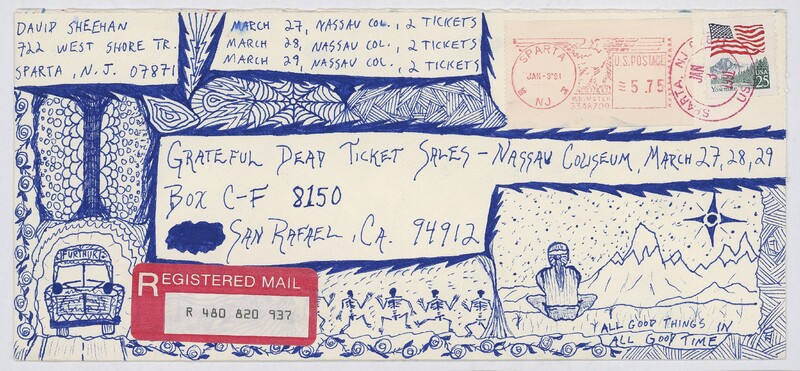 DAVID SHEEHAN
722 WEST SHORE TR.
SPARTA, N.J. 07871
MARCH 27, NASSAU COL., 2 TICKETS
MARCH 28, NASSAU COL., 2 TICKETS
MARCH 29, NASSAU COL., 2 TICKETS
SPARTA
JAN-3'91
NJ
U.S. POSTAGE
5.75
SPARTA, N.J.
JAN
USA
25
GRATEFUL DEAD TICKET SALES - NASSAU COLISEUM, MARCH 27, 28, 29
BOX C-F 8150
SAN RAFAEL, CA. 94912
FURTHUR
REGISTERED MAIL
R 480 820 937
ALL GOOD THINGS IN
ALL GOOD TIME